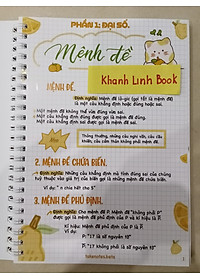 PHẦN 1: ĐẠI SỐ.
Mệnh đề
Khanh Linh Book
1. MỆNH ĐỀ.
Định nghĩa: Mệnh đề lô-gic (gọi tắt là mệnh đề)
là một câu khẳng định hoặc đúng hoặc sai.
Một mệnh đề không thể vừa đúng vừa sai.
Một câu khẳng định đúng được gọi là mệnh đề đúng.
Một câu khẳng định sai được gọi là mệnh đề sai.
Thông thường, những câu nghi vấn, câu cầu
khiến, câu cảm thán không phải mệnh đề.
2. MỆNH ĐỀ CHỨA BIẾN.
Định nghĩa: Những câu khẳng định mà tính đúng sai của chúng
tuỳ thuộc vào giá trị của biến gọi là những mệnh đề chứa biến.
Ví dụ: "n chia hết cho 5"
3. MỆNH ĐỀ PHỦ ĐỊNH.
Định nghĩa: Cho mệnh đề P. Mệnh đề "Không phải P"
được gọi là mệnh đề phủ định của P.
Kí hiệu: Mệnh đề phủ định của P là P̅.
Ví dụ:
P: "17 là số nguyên tố"
P̅: "17 không phải là số nguyên tố"